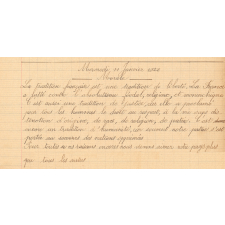 Mercredi 11 janvier 1922
Morale
La tradition française est une tradition de liberté. La France
a lutté contre l'absolutisme féodal, religieux, et monarchique
C'est aussi une tradition de justice, car elle a proclamé
pour tous les hommes le droit au respect, à la vie sans
distinction d'origine, de , de religion, de . C'est
aussi une tradition d'humanité, car souvent notre patrie s'est
portée au secours des nations opprimées
Pour toutes ces raisons nous devons aimer notre pays plus
que tous les autres